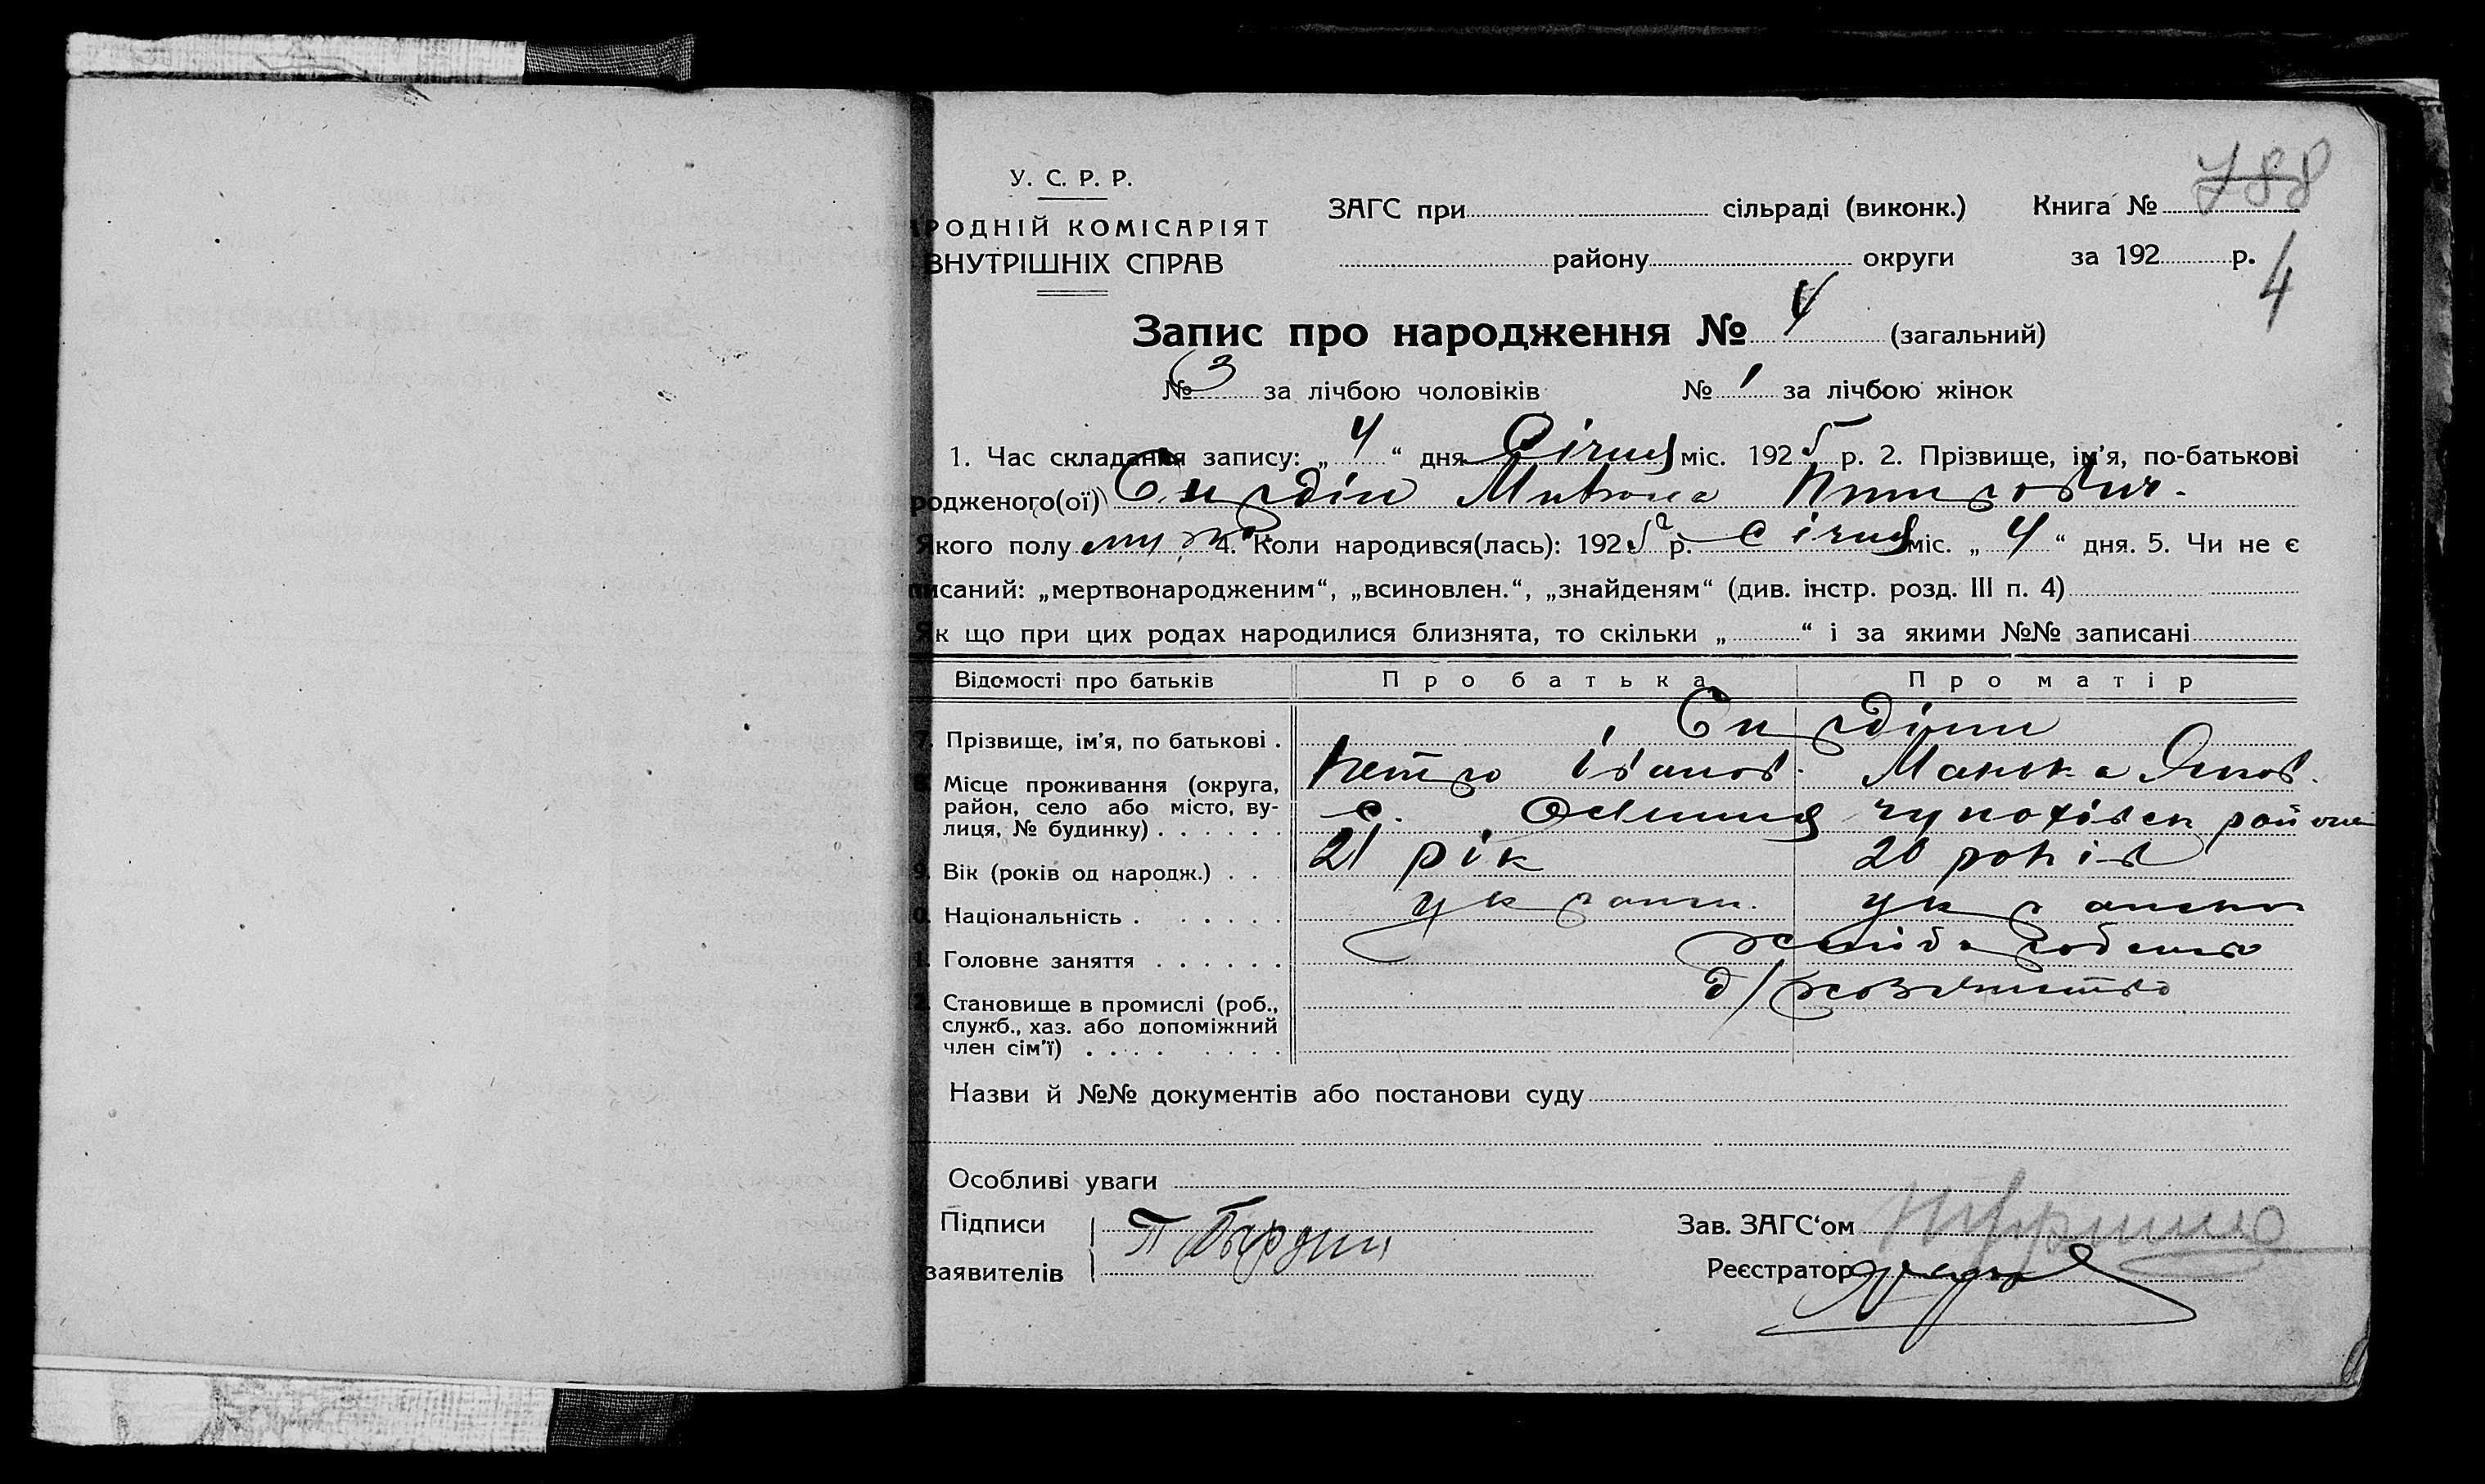 У. С. Р. Р.
РОДНІЙ КОМІСАРІЯТ
ВНУТРІШНІХ СПРАВ
ЗАГС при сільраді (виконк.) Книга № 788
району округи за 192 р.
4
Запис про народження № 4 (загальний)
№ 3 за лічбою чоловіків № 1 за лічбою жінок
1. Час складання запису: „4“ дня Січня міс. 1925 р. 2. Прізвище, ім’я, по-батькові
родженого(ої)
Якого полу муж. 4. Коли народився(лась): 1925 р. Січня міс. „4“ дня. 5. Чи не є
писаний: „мертвонародженим“, „всиновлен.“, „знайденям“ (див. інстр. розд. III п. 4)
Як що при цих родах народилися близнята, то скільки „ “ і за якими №№ записані
Відомості про батьків Про батька Про матір
7. Прізвище, ім’я, по батькові .
Петро Іванов. Манька
8. Місце проживання (округа, район, село або місто, вулиця, № будинку) . . . . . . с. район
9. Вік (років од народж.) . . . 21 рік 20 років
0. Національність . . . . . . україн.
1. Головне заняття . . . . . . хліборобство
2. Становище в промислі (роб., служб., хаз. або допоміжний член сім’ї) . . . .
Назви й №№ документів або постанови суду
Особливі уваги
Підписи заявителів
Зав. ЗАГС‘ом
Реєстратор